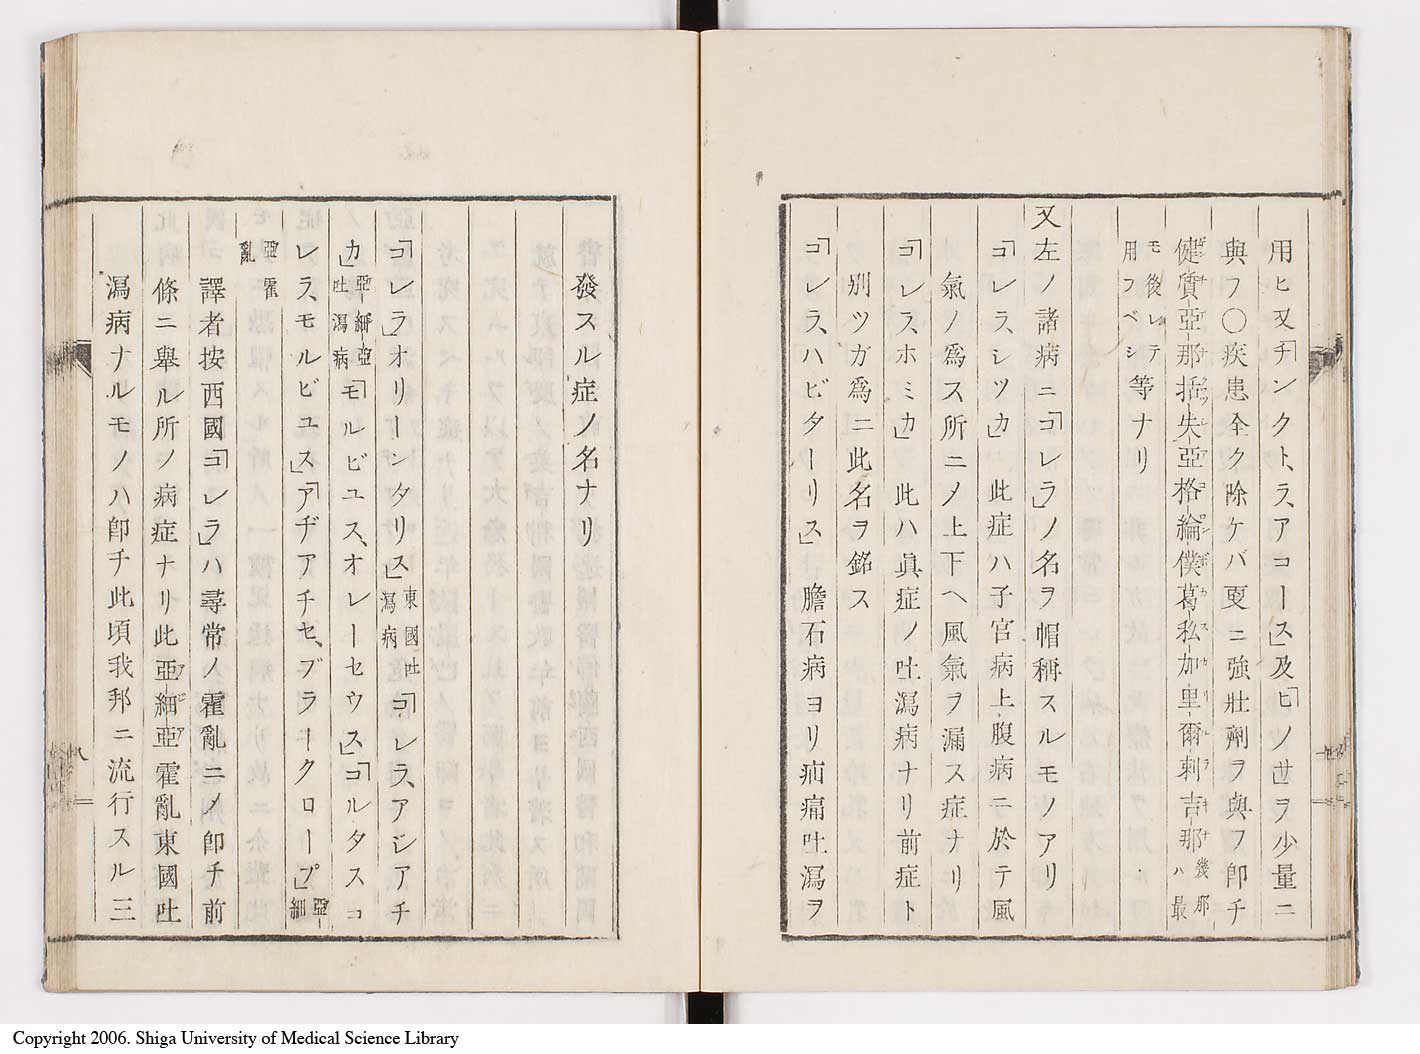 用ヒ又「チンクトラ、アコース」及ヒ「ヒノ」サ」ヲ少量ニ
與フ〇疾患全ク除ケバ更ニ強壯劑ヲ與フ卽チ
健質亞那括失亞格綸僕葛私加里爾剌吉那幾那ハ最
モ後レテ用フベシ等ナリ
又左ノ諸病ニ「コレラ」ノ名ヲ冒稱スルモノアリ
「コレラ、シツカ」此症ハ子宮病上腹病ニ於テ風
氣ノ爲ス所ニノ上下ヘ風氣ヲ漏ス症ナリ
「コレラ、ホミカ」此ハ眞症ノ吐瀉病ナリ前症ト
別ツガ爲ニ此名ヲ銘ス
「コレラ、ハビターリス」膽石病ヨリ疝痛吐瀉ヲ
發スル症ノ名ナリ
「コレラ」オリーンタリス」東國吐瀉病「コレラ、アシアチ
カ」亞細亞吐瀉病「モルビユス、オレーセウス」「コルタスコ
レラ、モルビユス」「アヂアチセ、ブラークロープ」亞細
亞霍亂
譯者按西國「コレラ」ハ尋常ノ霍亂ニノ卽チ前
條ニ擧ル所ノ病症ナリ此亞細亞霍亂東國吐
瀉病ナルモノハ卽チ此頃我邦ニ流行スル三
八
Copyright 2006. Shiga University of Medical Science Library